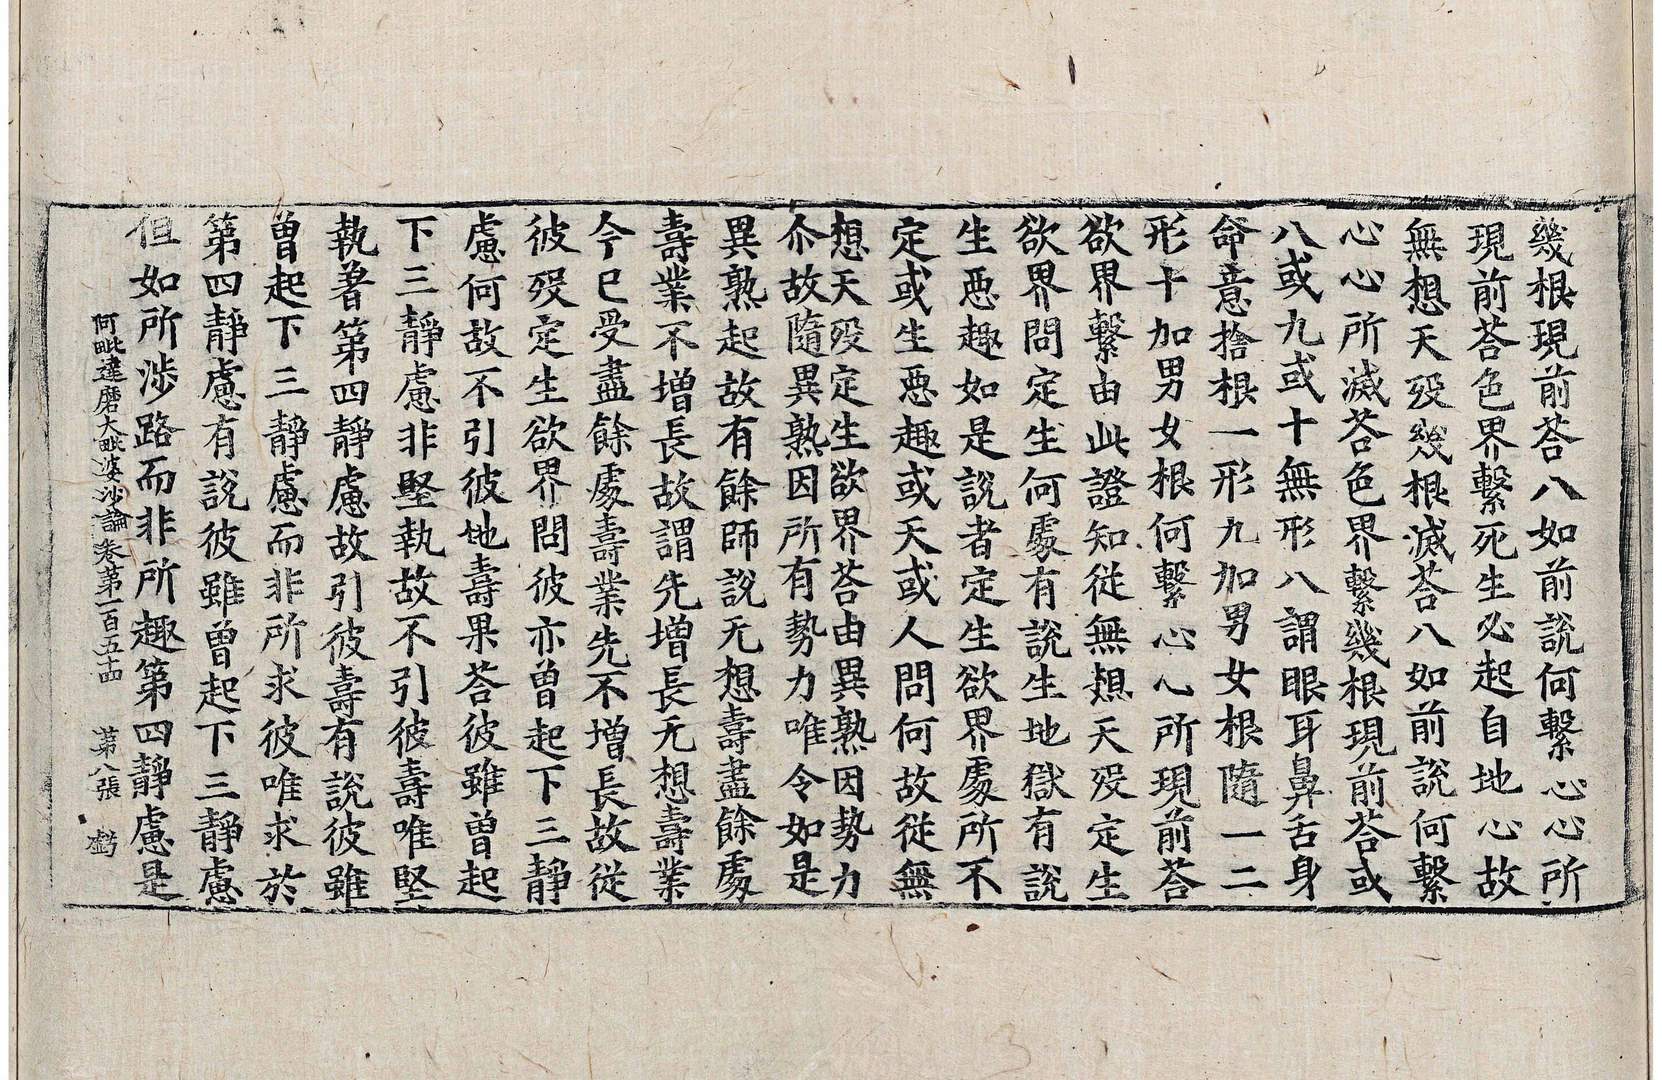 幾根現前荅八如前說何繫心心所
現前荅色界繫死生必起自地心故
無想天殁幾根滅荅八如前說何繫
心心所滅荅色界繫幾根現前荅或
八或九或十無形八謂眼耳鼻舌身
命意捨根一形九加男女根隨一二
形十加男女根何繫心心所現前荅
欲界繫由此證知從無想天殁定生
欲界問定生何處有說生地獄有說
生惡趣如是說者定生欲界處所不
定或生惡趣或天或人問何故從無
想天殁定生欲界荅由異熟因勢力
尒故隨異熟因所有勢力唯令如是
異熟起故有餘師說无想壽盡餘處
壽業不增長故謂先增長无想壽業
今已受盡餘處壽業先不增長故從
彼殁定生欲界問彼亦曾起下三靜
慮何故不引彼地壽果荅彼雖曾起
下三靜慮非堅執故不引彼壽唯堅
執著第四靜慮故引彼壽有說彼雖
曾起下三靜慮而非所求彼唯求於
第四靜慮有說彼雖曾起下三靜慮
但如所涉路而非所趣第四靜慮是
阿毗達磨大毗婆沙論卷第一百五十四 第八張